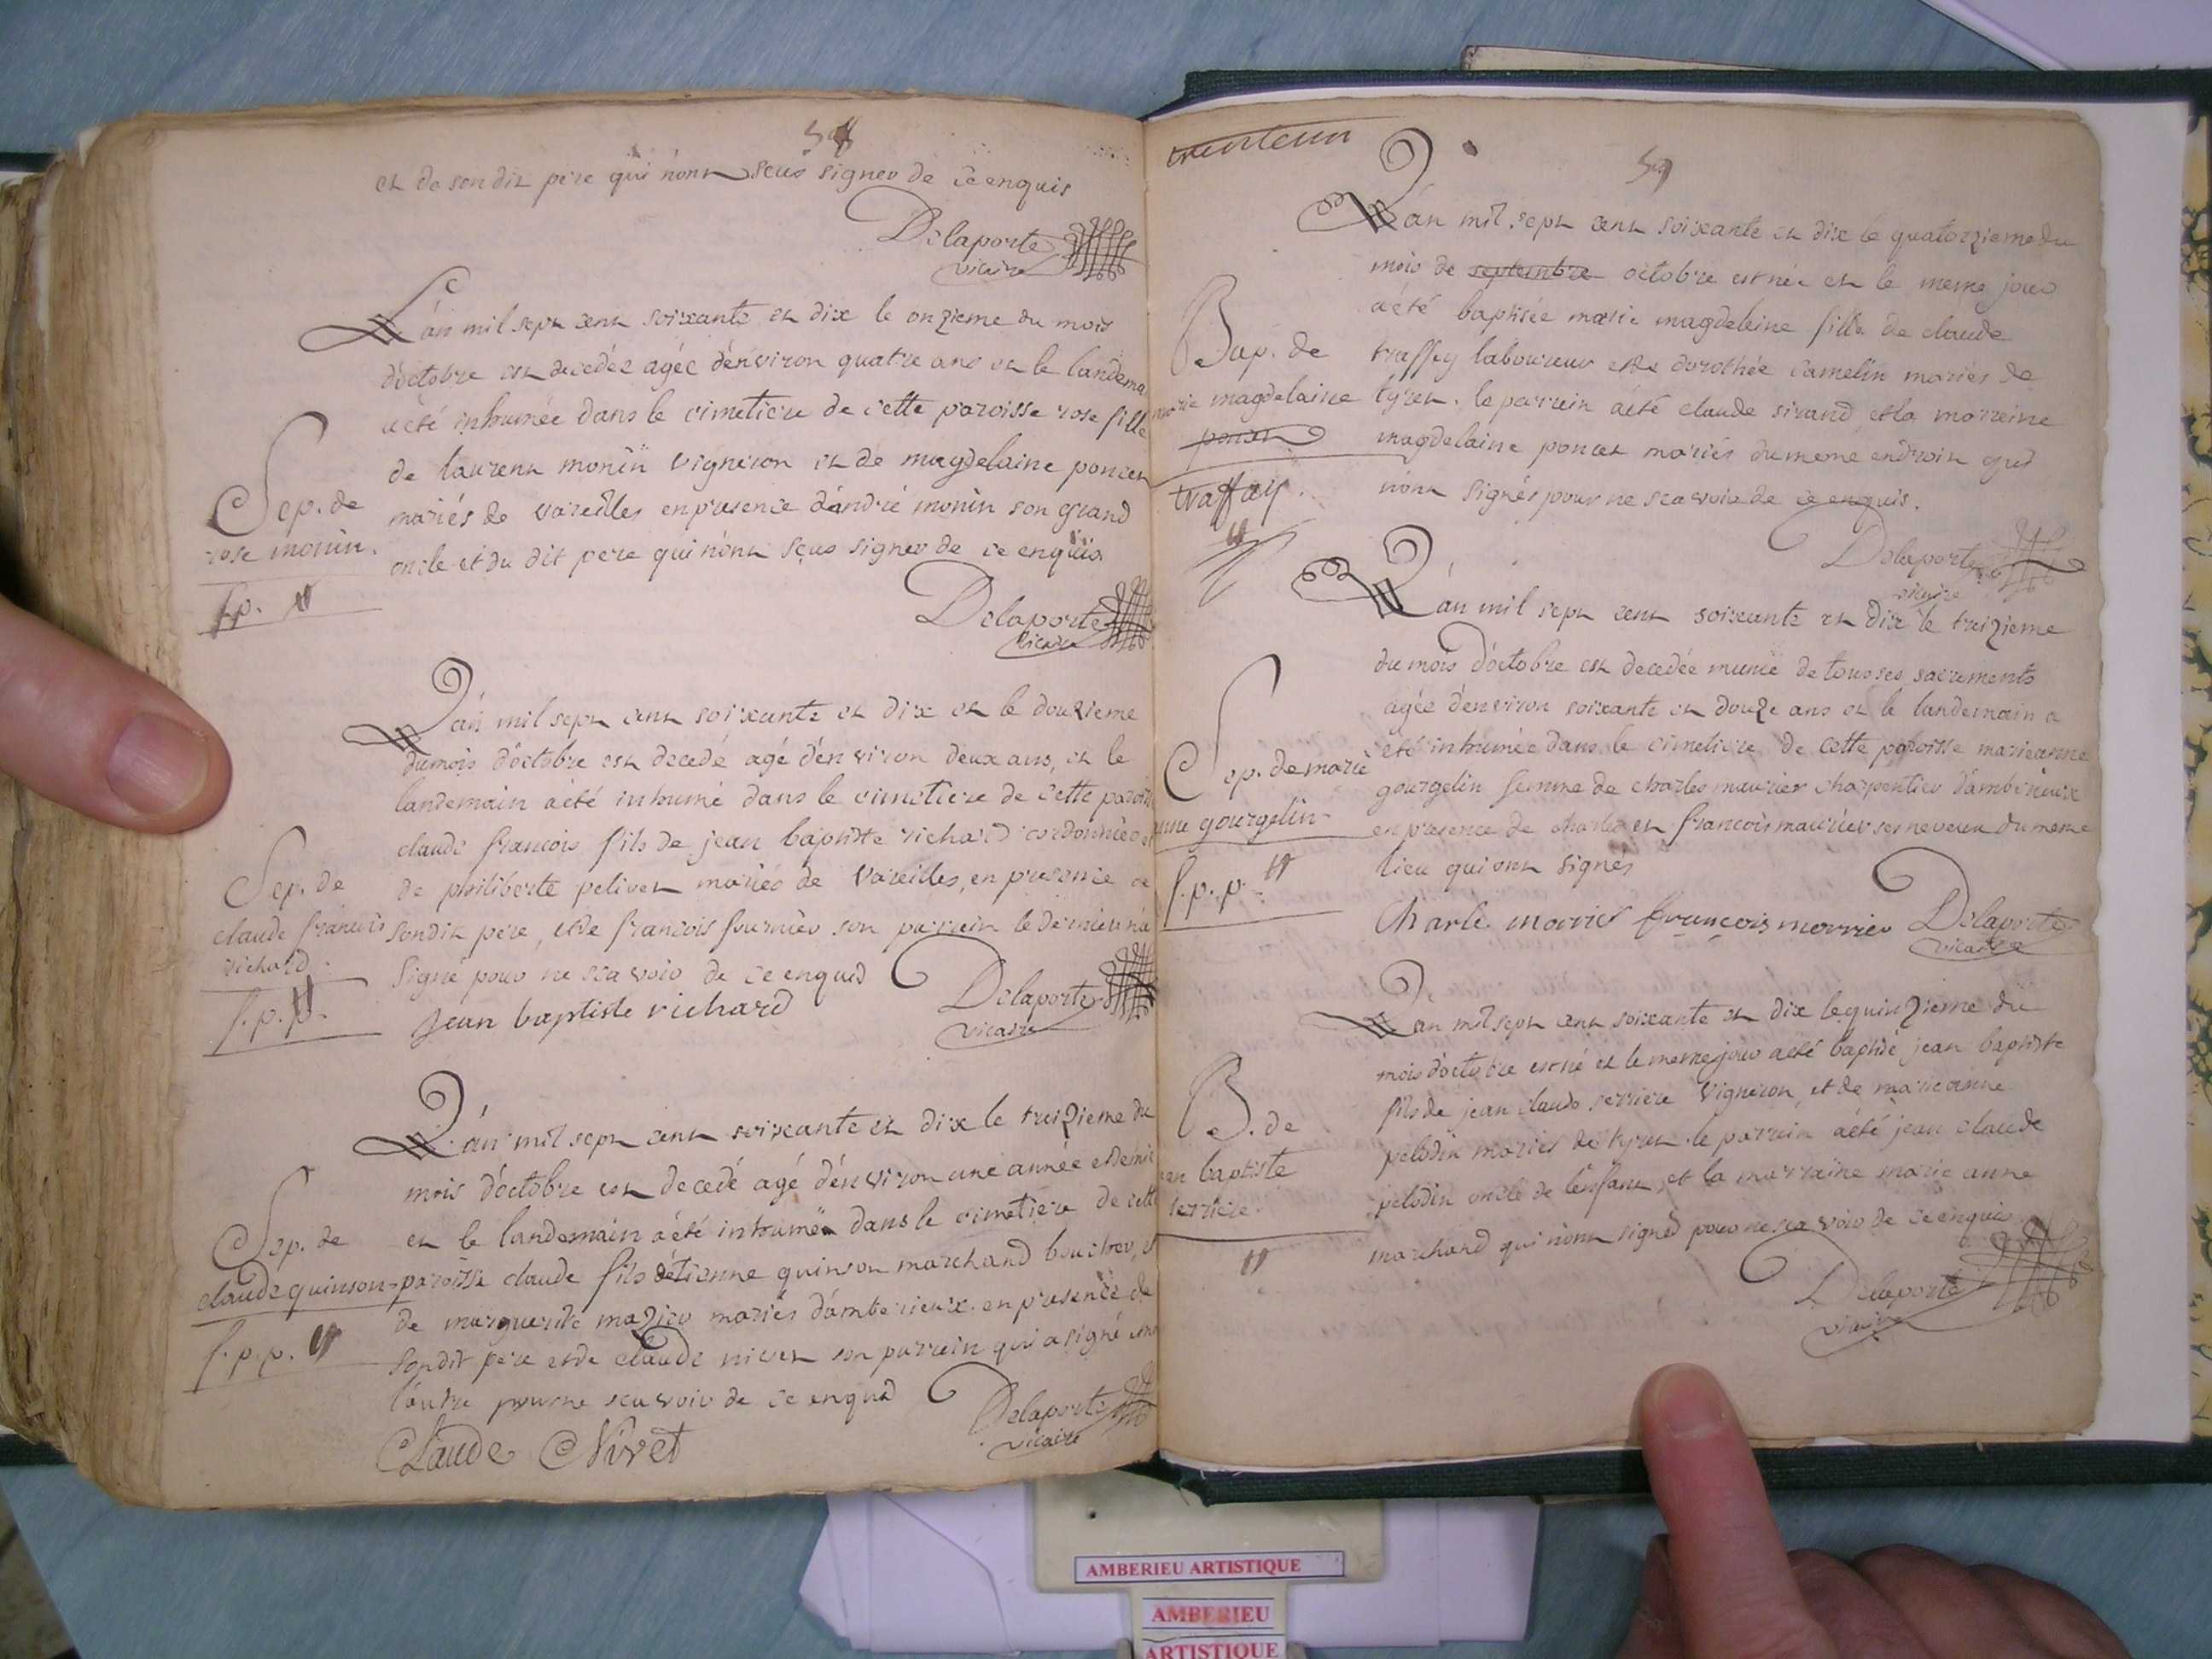 58
et de son dit pere qui n'ont sçus signer de ce enquis
Delaporte
vicaire
L'an mil sept cent soixante et dix le onzieme du mois
d'octobre est decedée agée d'environ quatre ans et le landema
a été inhumée dans le cimetiere de cette paroisse rose fille
de laurent monin vigneron et de magdelaine poncet
mariés de vareilles en presence d'andré monin son grand
oncle et du dit pere qui n'ont sçus signer de ce enquis
Sep. de
rose monin.
f.p.
Delaporte
vicaire
L'an mil sept cent soixante et dix et le douzieme
du mois d'octobre est decedé agé d'environ deux ans, et le
landemain a été inhumé dans le cimetiere de cette paroiss
claude francois fils de jean baptiste richard cordonnier et
de philiberte pelivet mariés de vareilles, en presence de
son dit pere, et de francois fournier son parrein le dernier n'a
signé pour ne sca voir de ce enquis
Sep. de
claude francois
richard.
f.p.p.
jean baptiste richard
Delaporte
vicaire
L'an mil sept cent soixante et dix le treizieme du
mois d'octobre est decedé agé d'environ une année et demie
et le landemain a été inhumé dans le cimetiere de cette
paroisse claude fils d'étienne quinson marchand boucher, et
de marguerite mazier mariés d'amberieux en presence de
son dit pere et de claude nivet son parrein qui a signé non
l'autre pour ne sca voir de ce enquis
Sep. de
claude quinson
f.p.p.
Claude Nivet
Delaporte
vicaire
trenteun
59
L'an mil sept cent soixante et dix le quatorzieme du
mois de septembre octobre est née et le meme jour
a été baptisée marie magdeleine fille de claude
traffey laboureur et de dorothée camelin mariés de
tyret. le parrein a été claude sirand et la marreine
magdelaine poncet mariés du meme endroit qui
n'ont signés pour ne sca voir de ce enquis.
Bap. de
marie magdelaine
poncet
traffey.
Delaporte
vicaire
L'an mil sept cent soixante et dix le treizieme
du mois d'octobre est decedée munie de tous ses sacrements
agée d'environ soixante et douze ans et le landemain a
été inhumée dans le cimetiere de cette paroisse marie anne
gourgelin femme de charles maurier charpentier d'amberieux
en presence de charles et francois maurier ses neveux du meme
lieu qui ont signés
Sep. de marie
anne gourgelin
f.p.p.
Charle morrier françois morrier Delaporte
vicaire
L'an mil sept cent soixante et dix le quinzieme du
mois d'octobre est né et le meme jour a été baptisé jean baptiste
fils de jean claude serriere vigneron, et de marie anne
pelodin mariés de tyret. le parrein a été jean claude
pelodin oncle de l'enfant, et la marraine marie anne
marchand qui n'ont signés pour ne sca voir de ce enquis
B. de
jean baptiste
serriere.
Delaporte
vicaire
AMBERIEU ARTISTIQUE
AMBERIEU
ARTISTIQUE